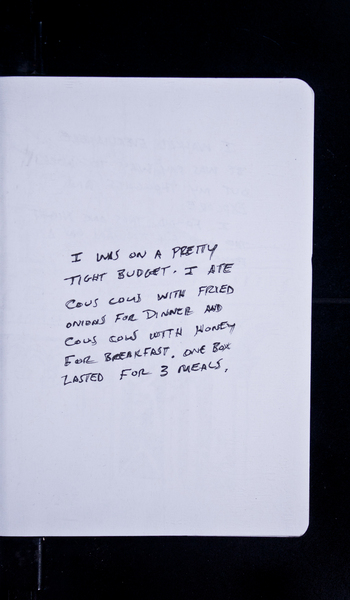 I WAS ON A PRETTY
TIGHT BUDGET. I ATE
COUS COUS WITH FRIED
ONIONS FOR DINNER AND
COUS COUS WITH HONEY
FOR BREAKFAST. ONE BOX
LASTED FOR 3 MEALS.